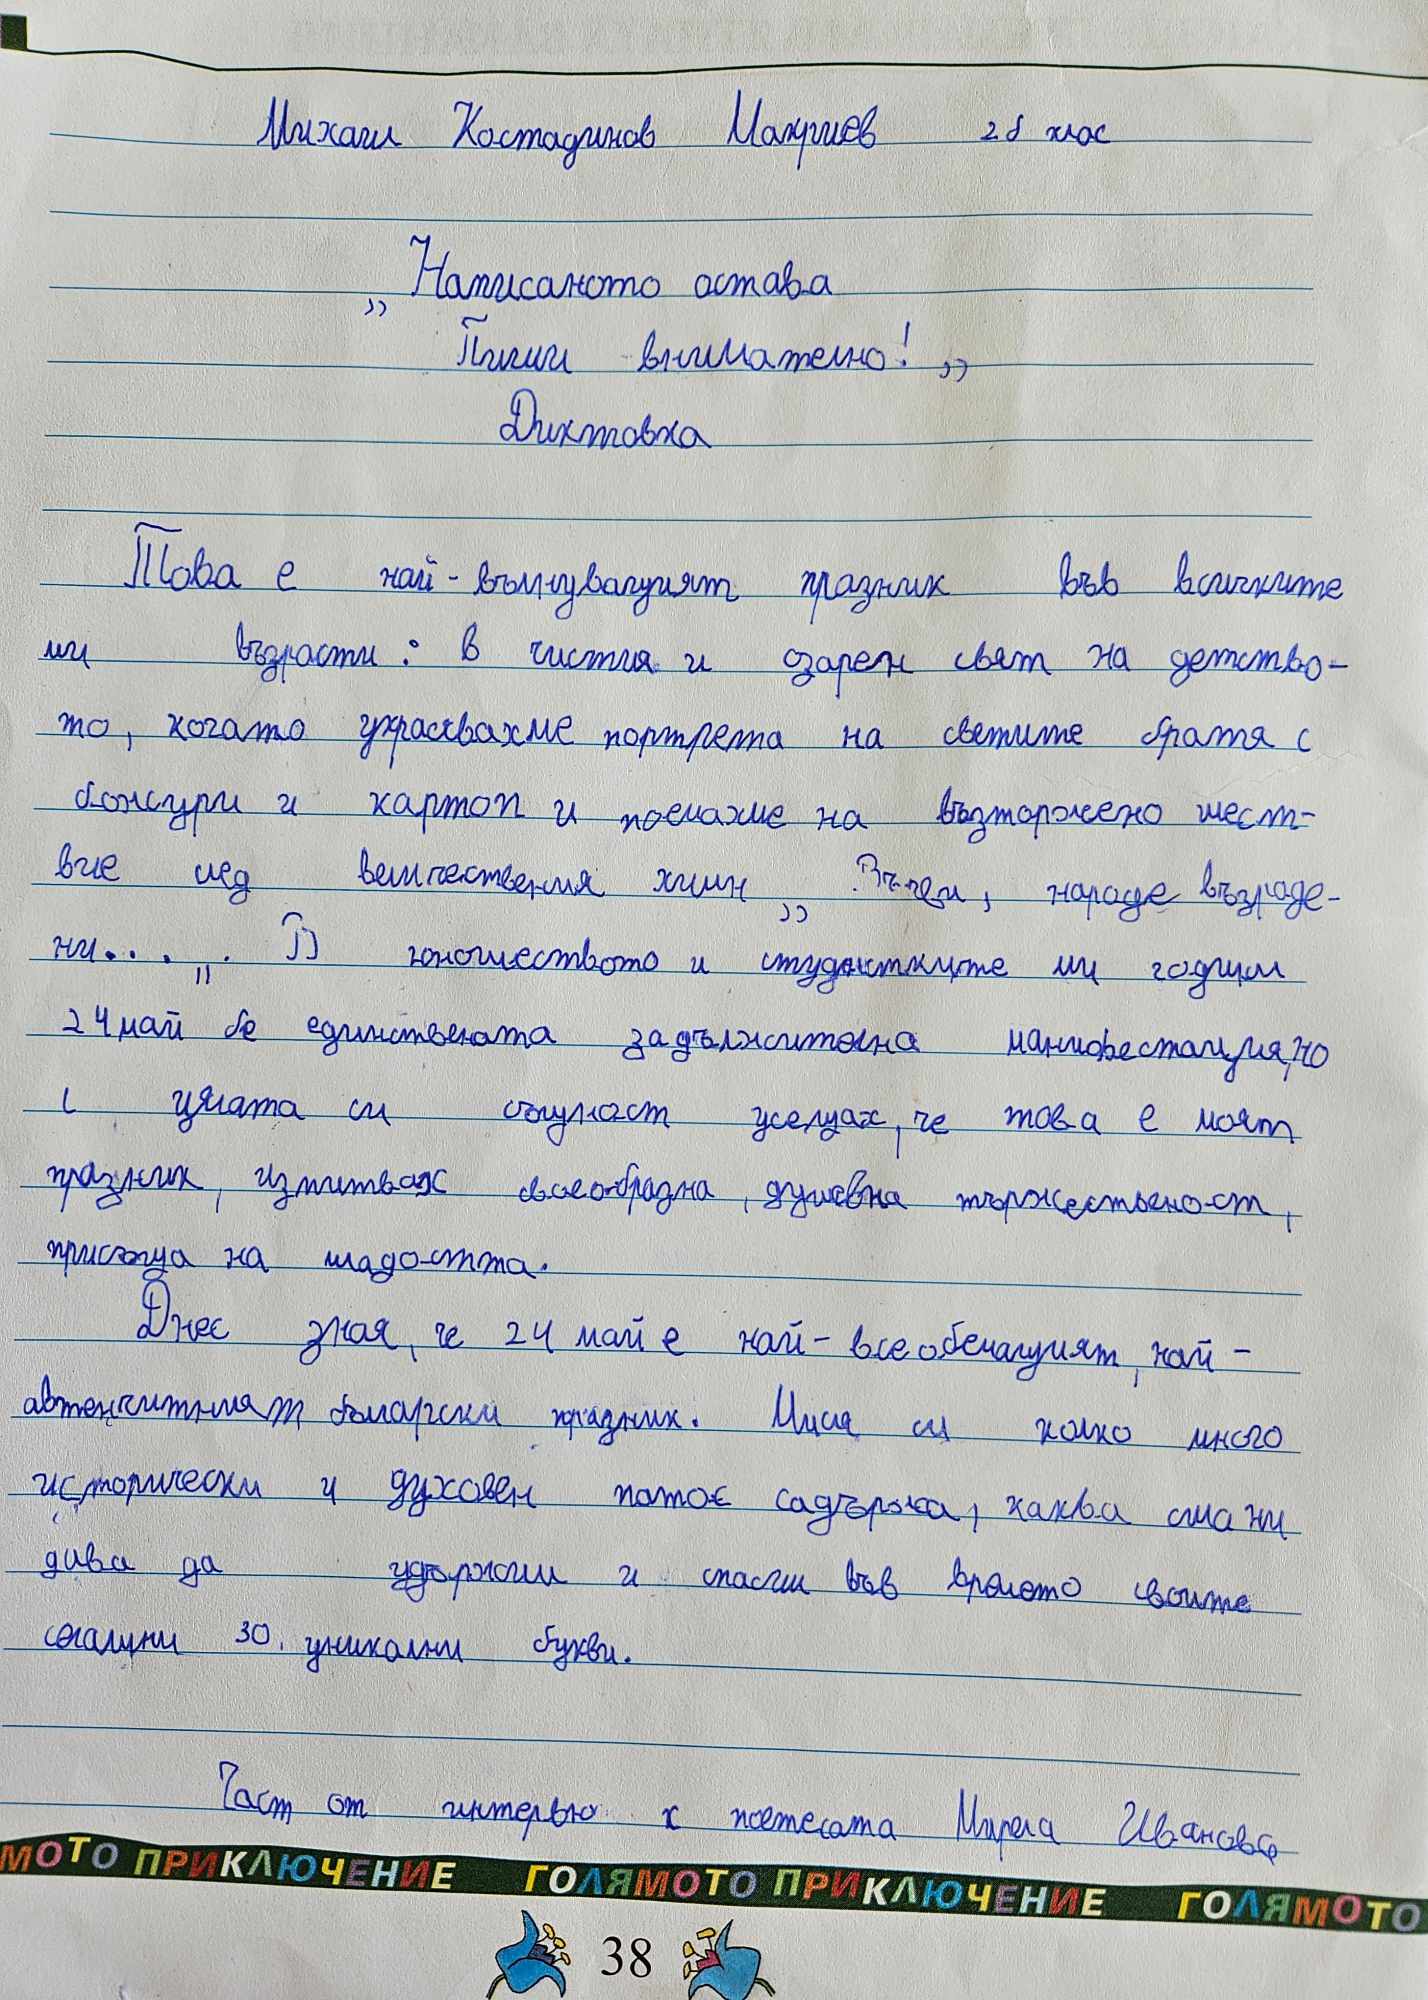 Михаил Костадинов 2б клас
„Написаното остава
Пиши внимателно!„
Диктовка
Това е най-вълнуващият празник във всичките
ми възрасти: в чистия и озарен свят на детство-
то, когато украсявахме портрета на светите братя с
божури и картоп и поемахме на възторжено шест-
вие след величествения химн „Върви, народе възроде-
ни....„. В юношеството и студентските ми години
24 май бе единствената задължителна манифестация, но
с цялата си същност усещах, че това е моят
празник, изпитвах своеобразна, душевна тържественост,
присъща на младостта.
Днес зная, че 24 май е най-всеобемащият, най-
автентичният български празник. Мисля си колко много
исторически и духовен патос садържа, каква сила ни
дава да удържим и спасим във времето своите
сегашни 30 уникални букви.
Част от интервю к поетесата Мирела Иванова
МОТО ПРИКЛЮЧЕНИЕ ГОЛЯМОТО ПРИКЛЮЧЕНИЕ ГОЛЯМОТО
38